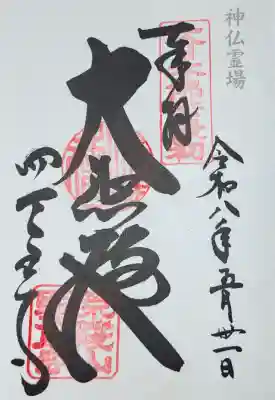 神仏霊場
令和八年五月卅一日
奉拝
大悲殿
四天王寺